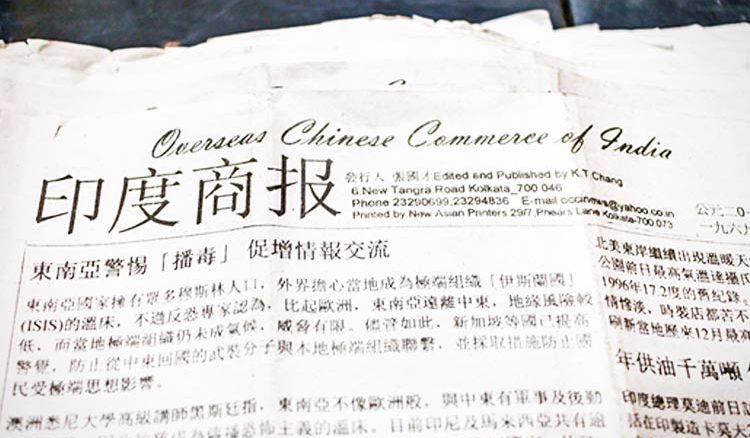 Overseas Chinese Commerce of India
印度商报
發行人 張國才Edited and Published by K.T.Chang
6.New Tangra Road Kolkata_700 046
Phone 23290699,23294836 E-mail occinews@yahoo.co.in
Printed by New Asian Printers 29/7,Phears Lane Kolkata-700 073
公元二0
一九六九
東南亞警惕「播毒」 促增情報交流
東南亞國家擁有眾多穆斯林人口，
(ISIS)的溫床，不過反恐專家認為，
低，而當地極端組織仍未成氣候，
警覺，防止從中東回國的武裝分子
民受極端思想影響。
澳洲悉尼大學高級講師黑斯廷指，
外界擔心當地成為極端組織「伊斯蘭國」
比起歐洲，東南亞遠離中東，地緣風險較
威脅有限。儘管如此，新加坡等國已提高
與本地極端組織聯繫，並採取措施防止國
東南亞不像歐洲般，與中東有軍事及後勤
恐怖主義的溫床。目前印尼及馬來西亞共有逾
北美東岸繼續出現溫暖天
公園前日最高氣溫達攝氏
1996年17.2度的舊紀錄。
情慘淡，時裝店都苦不
刷新當地歷來12月最高
年供油千萬噸
印度總理莫迪前日
話在印製造卡莫夫